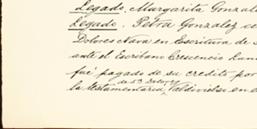 Legado. Margarita Gonzale
Legado. Petra Gonzalez ce
Dolores Nava en Escritura de
ante el Escribano Crescencio Lan
fué pagado de su credito por
de Dª Dolores
la Testamentaria, Valdivielso en e